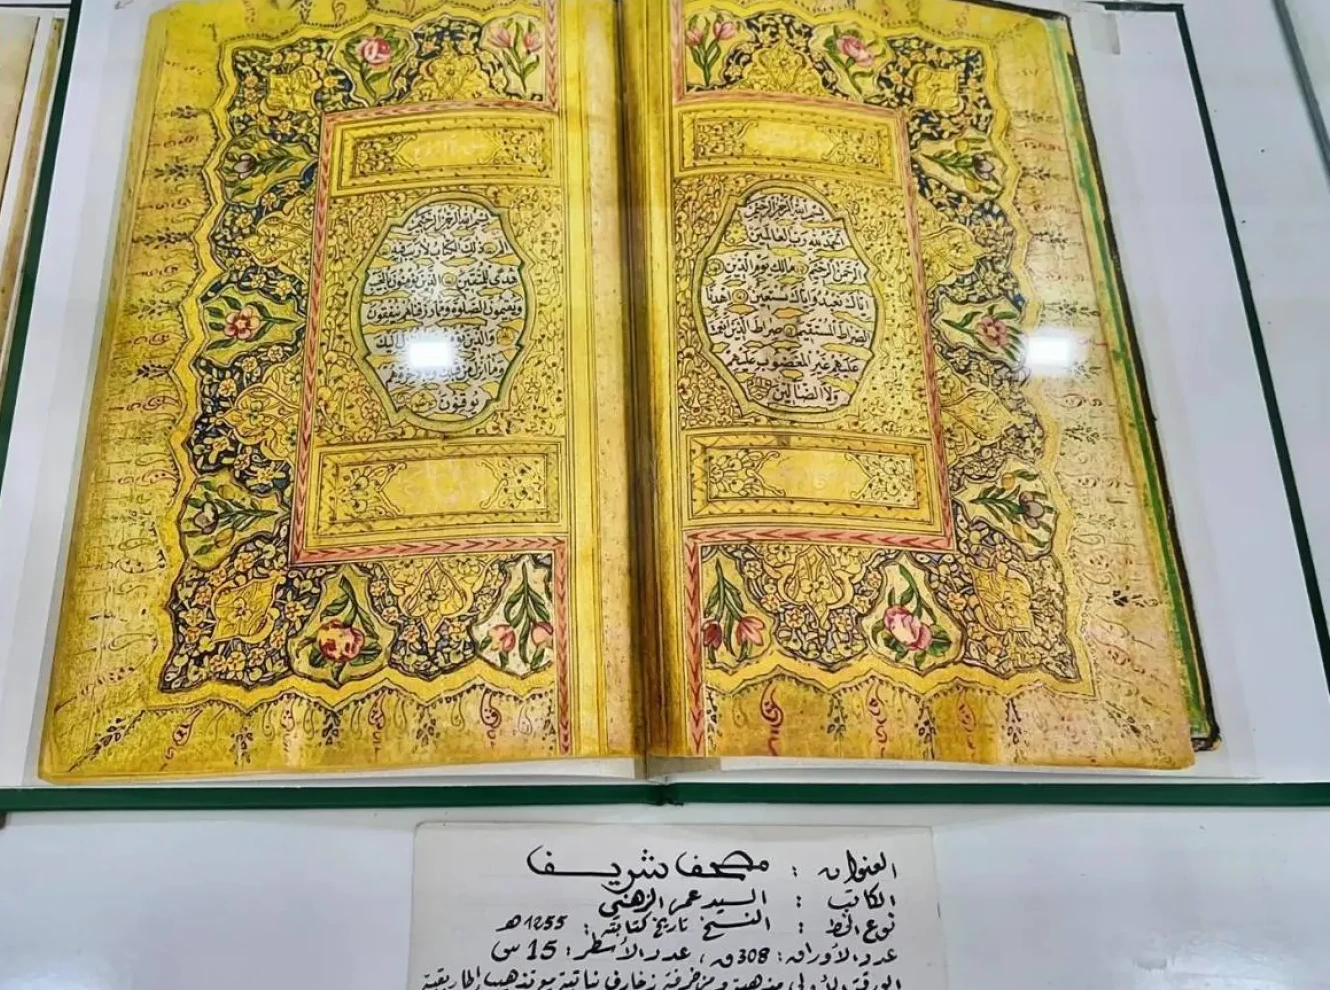 بسم الله الرحمن الرحيم
الحمد لله رب العالمين
الرحمن الرحيم مالك يوم الدين
اياك نعبد واياك نستعين اهدنا
الصراط المستقيم صراط الذين انعمت
عليهم غير المغضوب عليهم
ولا الضالين
بسم الله الرحمن الرحيم
الم ذلك الكتاب لا ريب فيه
هدى للمتقين الذين يؤمنون بالغيب
ويقيمون الصلوة ومما رزقناهم ينفقون
والذين اليك
وما انزل من قبلك
يوقنون
العنوان : مصحف شريف
الكاتب : السيد عمر الزهني
نوع الخط : النسخ تاريخ كتابته : 1255 هـ
عدد الأوراق : 308 ق ، عدد الأسطر : 15 س
الورقة الأولى مذهبة و مزخرفة زخارف نباتية مع تذهيب